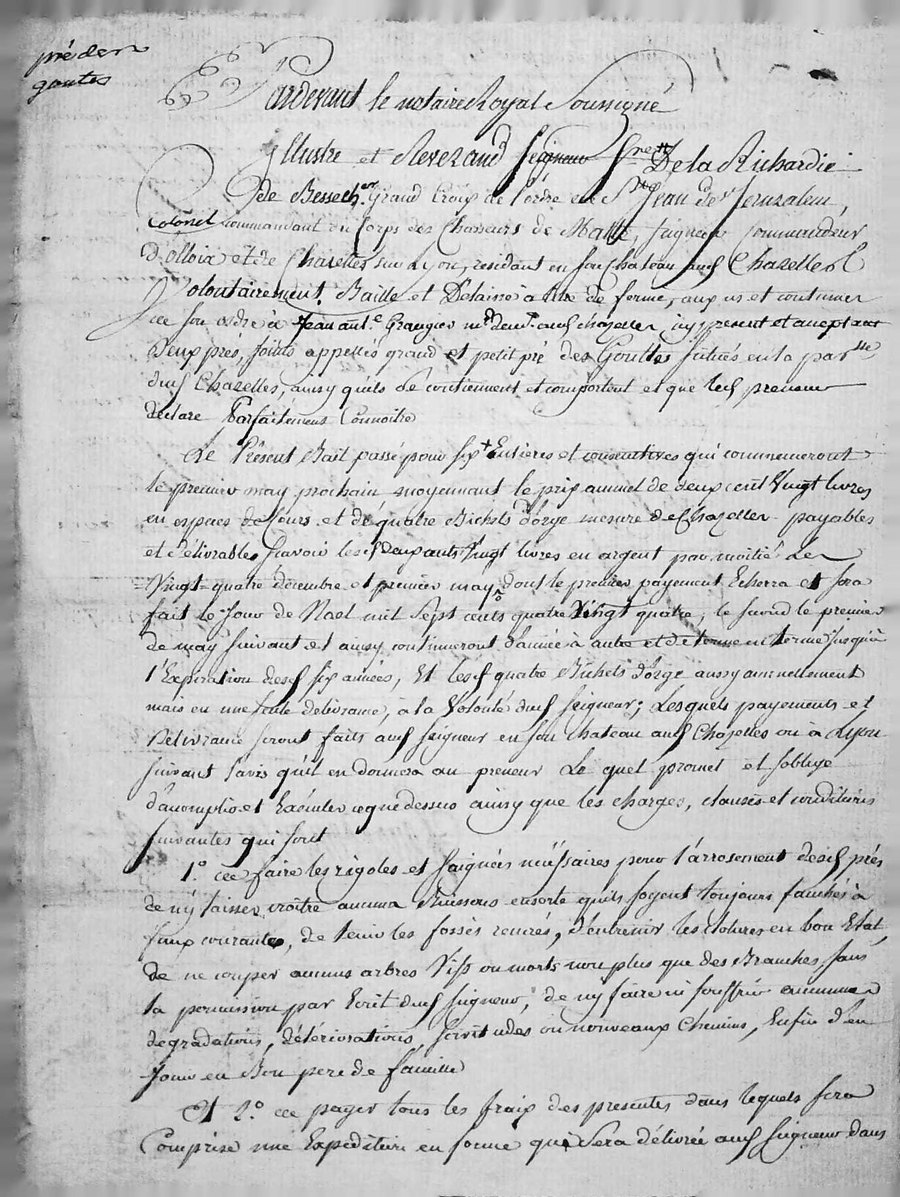 pré des
gouttes
Pardevant le notaire Royal Soussigné
Illustre et Reverand Seigneur De la Richardie
de Besse ch.er Grand Croix de l'ordre de St Jean de Jeruzalem,
Colonel Commandant du Corps des Chasseurs de Malte, Seigneur Commandeur
D'olloix et de Chazelles sur Lyon, residant en son Chateau aud Chazelles
Volontairement Baille et Delaisse à titre de ferme, aux us et coutumes
de son ordre à Jean ant.e Grangier md demt aud chazelles, icy present et acceptant
Deux prés, Joints appellés grand et petit pré des Gouttes scitués en la par.sse
dud Chazelles, ainsy qu'ils se contiennent et comportent et que led preneur
declare Parfaitement Connoitre
Le Présent Bail passé pour six Entieres et consecutives qui commenceront
le premier may prochain moyennant le prix annuel de deux cent Vingt livres
en espaces de cours et de quatre Bichets d'orge mesure de Chazelles payables
et délivrables scavoir lesd deux cents Vingt livres en argent par moitié Le
Vingt-quatre décembre et premier may dont le premier payement Echerra et sera
fait le Jour de Noel mil Sept cents quatre Vingt quatre, le second le premier
de may suivant et ainsy continueront d'année à autre et de terme en terme jusqu'à
l'Expiration desd six années, Et lesd quatre Bichets d'orge aussy annuellement
mais en une seule delivrance, a la Volonté dud Seigneur; Lesquels payements et
Délivrance seront faits aud Seigneur en son Chateau aud Chazelles ou à Lyon
suivant l'avis qu'il en donnera au preneur Le quel promet et s'oblige
d'accomplir et Exécuter ce que dessus ainsy que les charges, clauses et conditions
suivantes qui sont
1.o de faire les rigoles et saignées nécéssaires pour l'arrosement desd prés
de n'y laisser croître aucuns Buissons ensorte qu'ils soyent toujours fauchés à
faux courante, de tenir les fossés recurés, d'entretenir les clotures en bon Etat,
de ne couper aucuns arbres Vifs ou morts non plus que des Branches, sans
la permission par Ecrit dud Seigneur, de n'y faire ni souffrir aucunes
degradations, détériorations, servitudes ou nouveaux Chemins, Enfin d'en
Jouir en Bon pere de famille
Et 2.o de payer tous les fraix des presentes dans lequels sera
Comprise une Expedition en forme qui Sera délivrée aud Seigneur dans